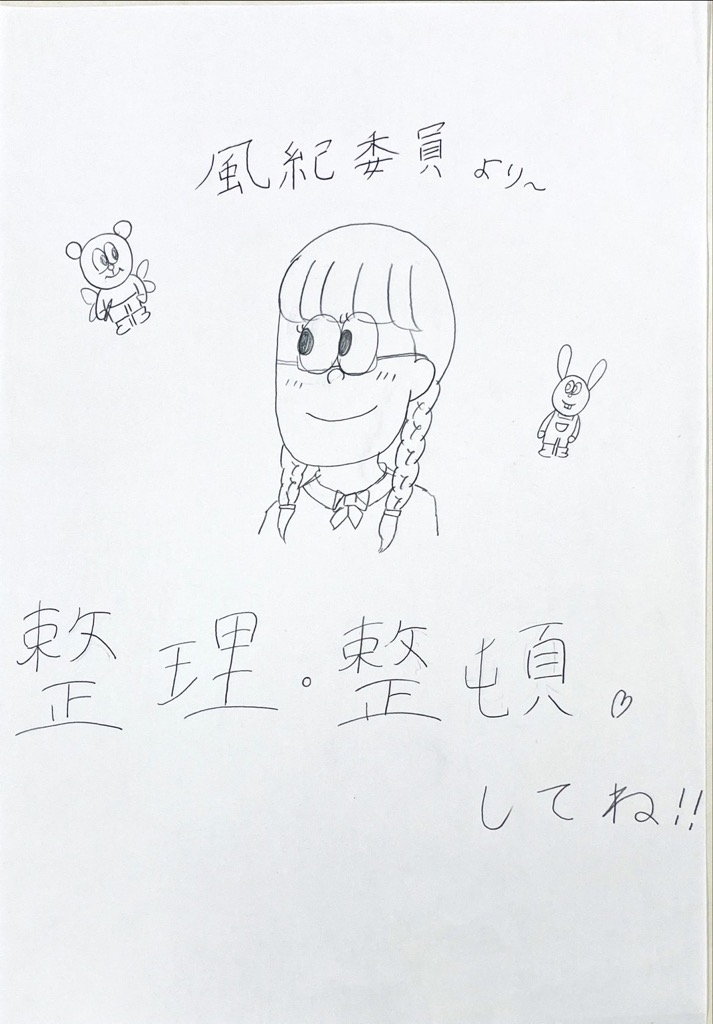 風紀委員より〜
整理・整頓。♡
してね!!